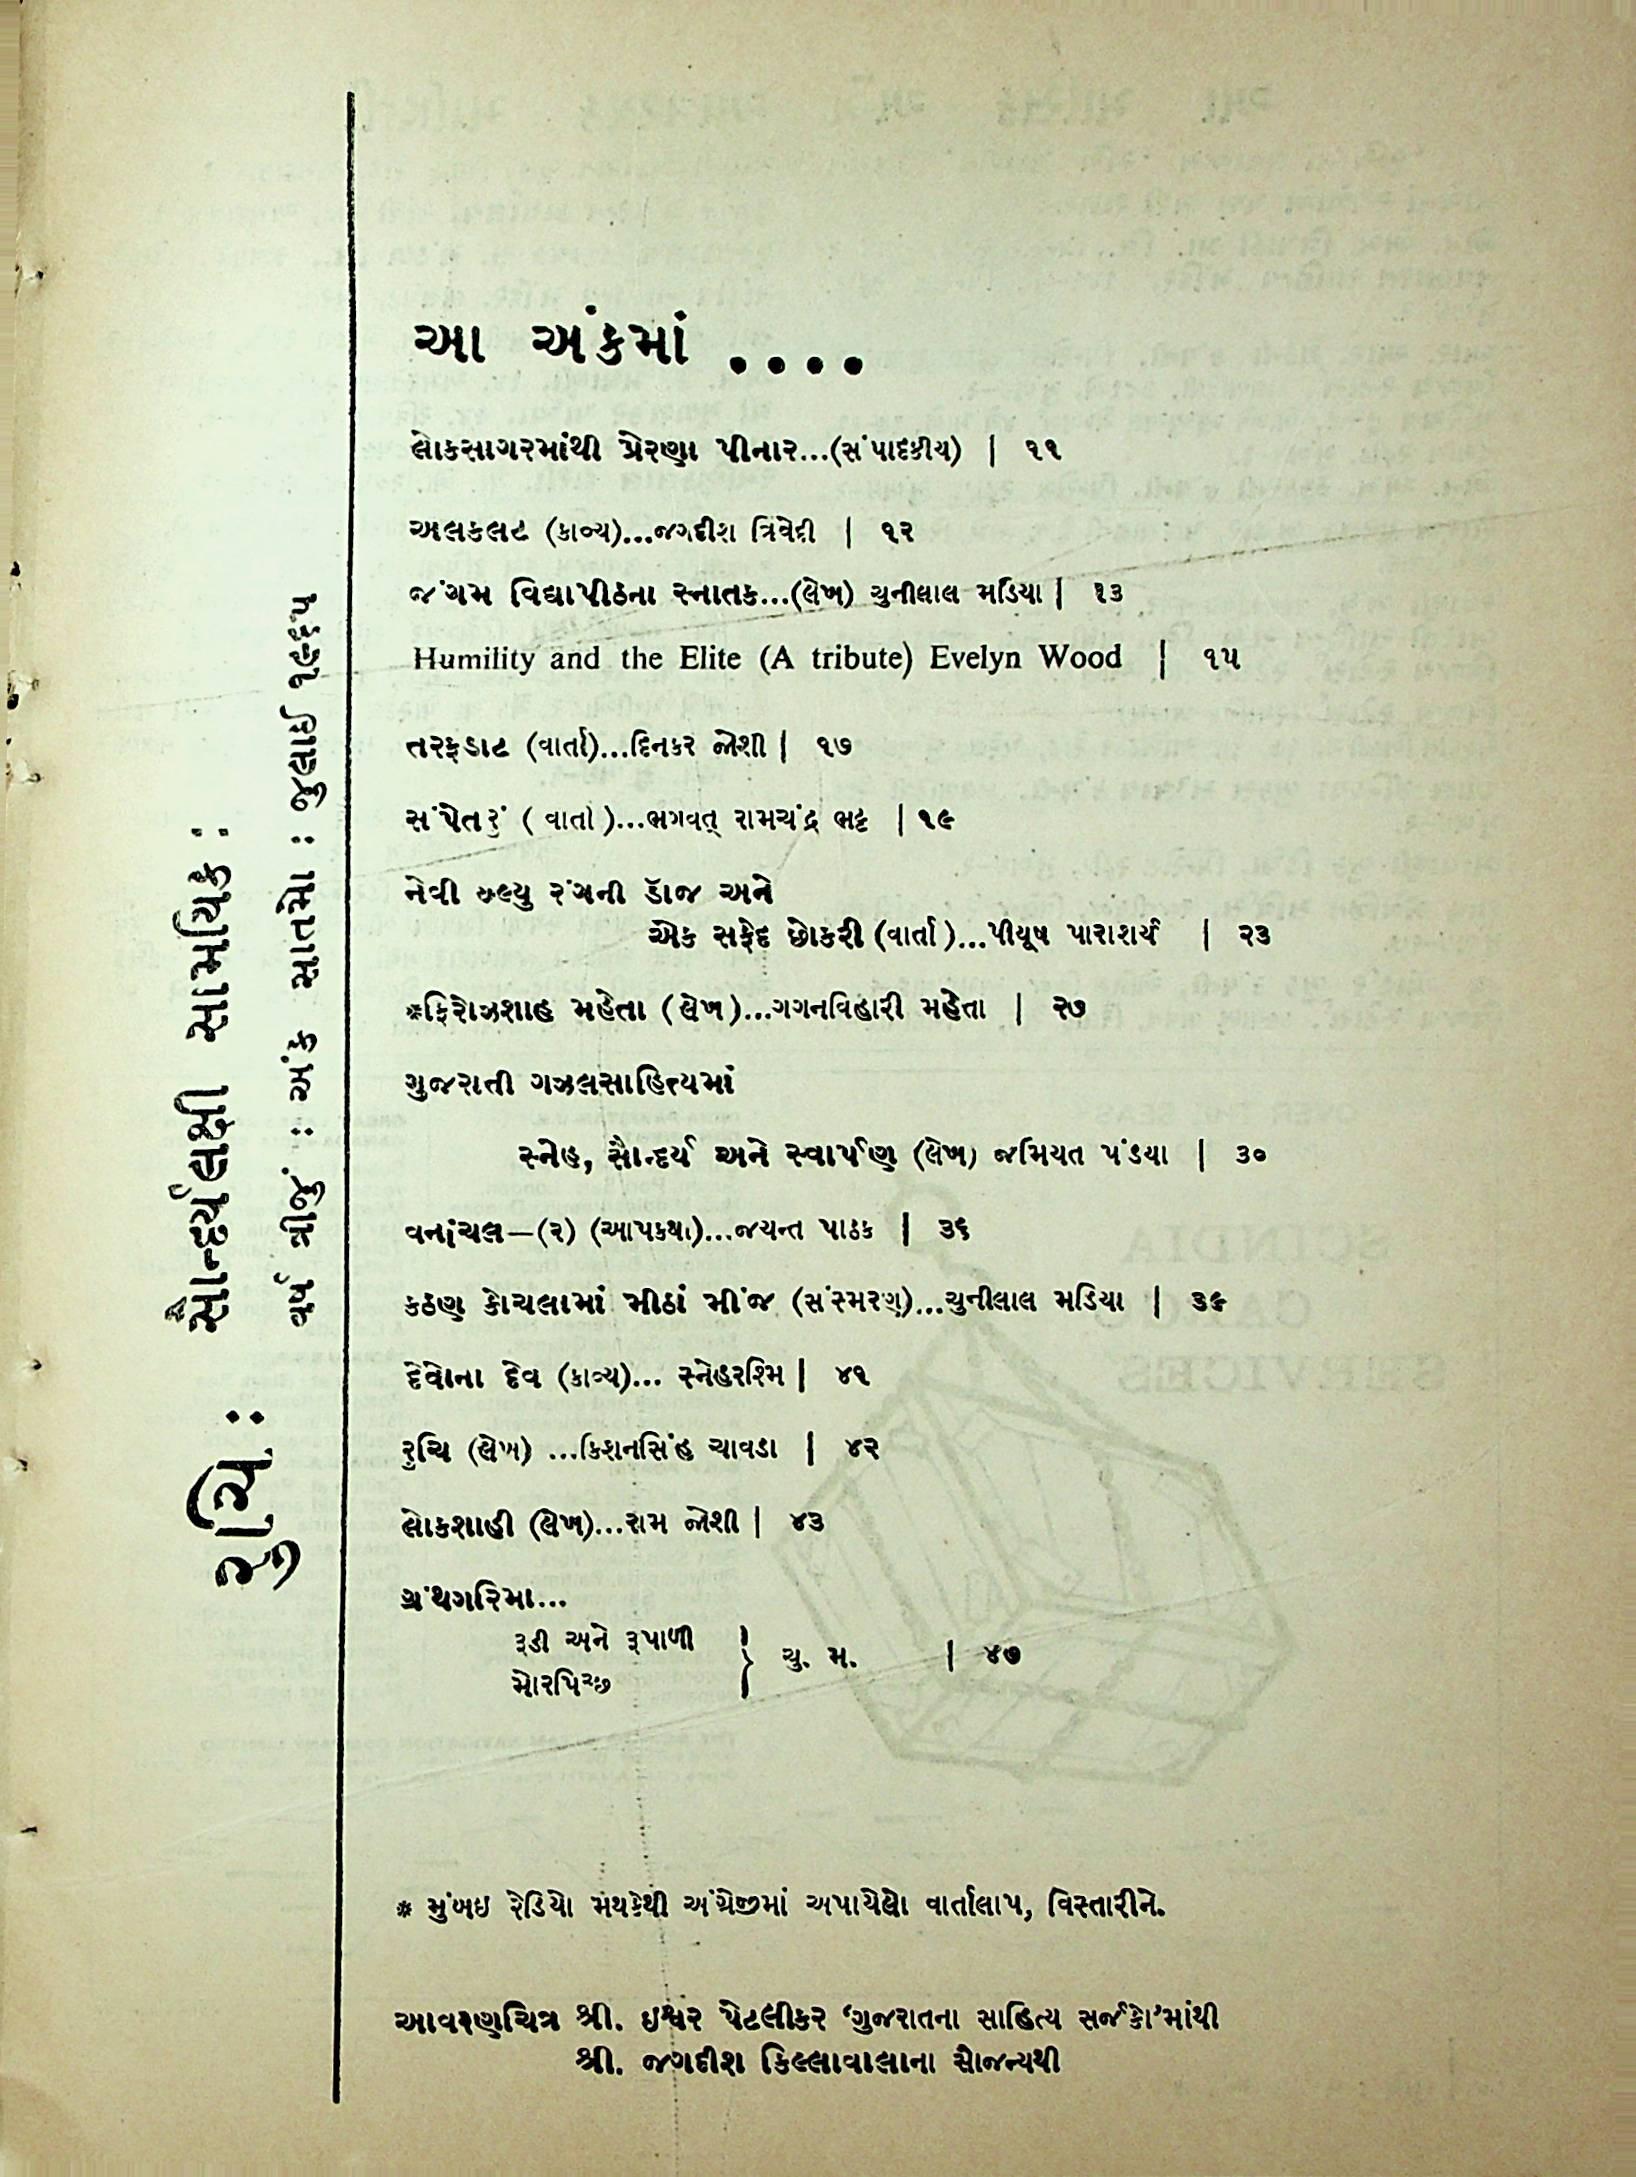 રુચિ :
સૌન્દર્યલક્ષી સામયિક :
વર્ષ ત્રીજું : અંક સાતમો : જુલાઈ ૧૯૬૫
આ અંકમાં ....
લોકસાગરમાંથી પ્રેરણા પીનાર...(સંપાદકીય) | ૧૧
અલકલટ (કાવ્ય)...જગદીશ ત્રિવેદી | ૧૨
જંગમ વિદ્યાપીઠના સ્નાતક...(લેખ) ચુનીલાલ મડિયા | ૧૩
Humility and the Elite (A tribute) Evelyn Wood | ૧૫
તરફડાટ (વાર્તા)...દિનકર જોશી | ૧૭
સંપેતરું (વાર્તા)...ભગવત્ રામચંદ્ર ભટ્ટ | ૧૯
નેવી બ્લ્યુ રંગની ડૉજ અને
એક સફેદ છોકરી (વાર્તા)...પીયૂષ પારાશર્ય | ૨૩
*ફિરોઝશાહ મહેતા (લેખ)...ગગનવિહારી મહેતા | ૨૭
ગુજરાતી ગઝલસાહિત્યમાં
સ્નેહ, સૌન્દર્ય અને સ્વાર્પણ (લેખ) જમિયત પંડયા | ૩૦
વનાંચલ—(૨) (આપકથા)...જયન્ત પાઠક | ૩૬
કઠણ કોચલામાં મીઠાં મીંજ (સંસ્મરણ)...ચુનીલાલ મડિયા | ૩૯
દેવોના દેવ (કાવ્ય)... સ્નેહરશ્મિ | ૪૧
રુચિ (લેખ) ...કિશનસિંહ ચાવડા | ૪૨
લોકશાહી (લેખ)...રામ જોશી | ૪૩
ગ્રંથગરિમા...
રૂડી અને રૂપાળી
મોરપિચ્છ } ચુ. મ. | ૪૭
* મુંબઇ રેડિયો મથકેથી અંગ્રેજીમાં અપાયેલો વાર્તાલાપ, વિસ્તારીને.
આવરણચિત્ર શ્રી. ઇશ્વર પેટલીકર ‘ગુજરાતના સાહિત્ય સર્જકો’માંથી
શ્રી. જગદીશ કિલ્લાવાલાના સૌજન્યથી